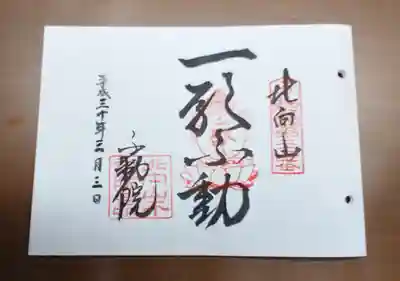 北向山
一願不動
不動院
平成三十年三月三日